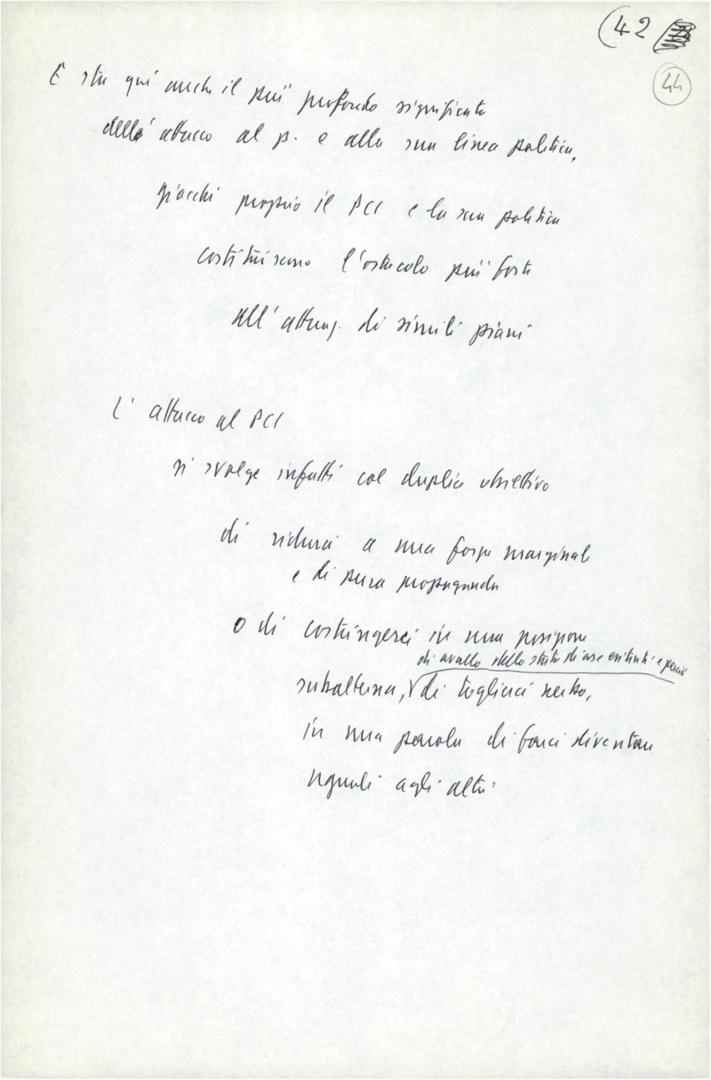 (42
44
E sta qui anche il più profondo significato
dell'attacco al p. e alla sua linea politica,
giacché proprio il PCI e la sua politica
costituiscono l'ostacolo più forte
all'attuaz. di simili piani
L'attacco al PCI
si svolge infatti col duplice obiettivo
di ridurci a una forza marginale
e di pura propaganda
o di costringerci in una posizione
di avallo dello stato di cose esistente e perciò
subalterna, di toglierci nerbo,
in una parola di farci diventare
uguali agli altri